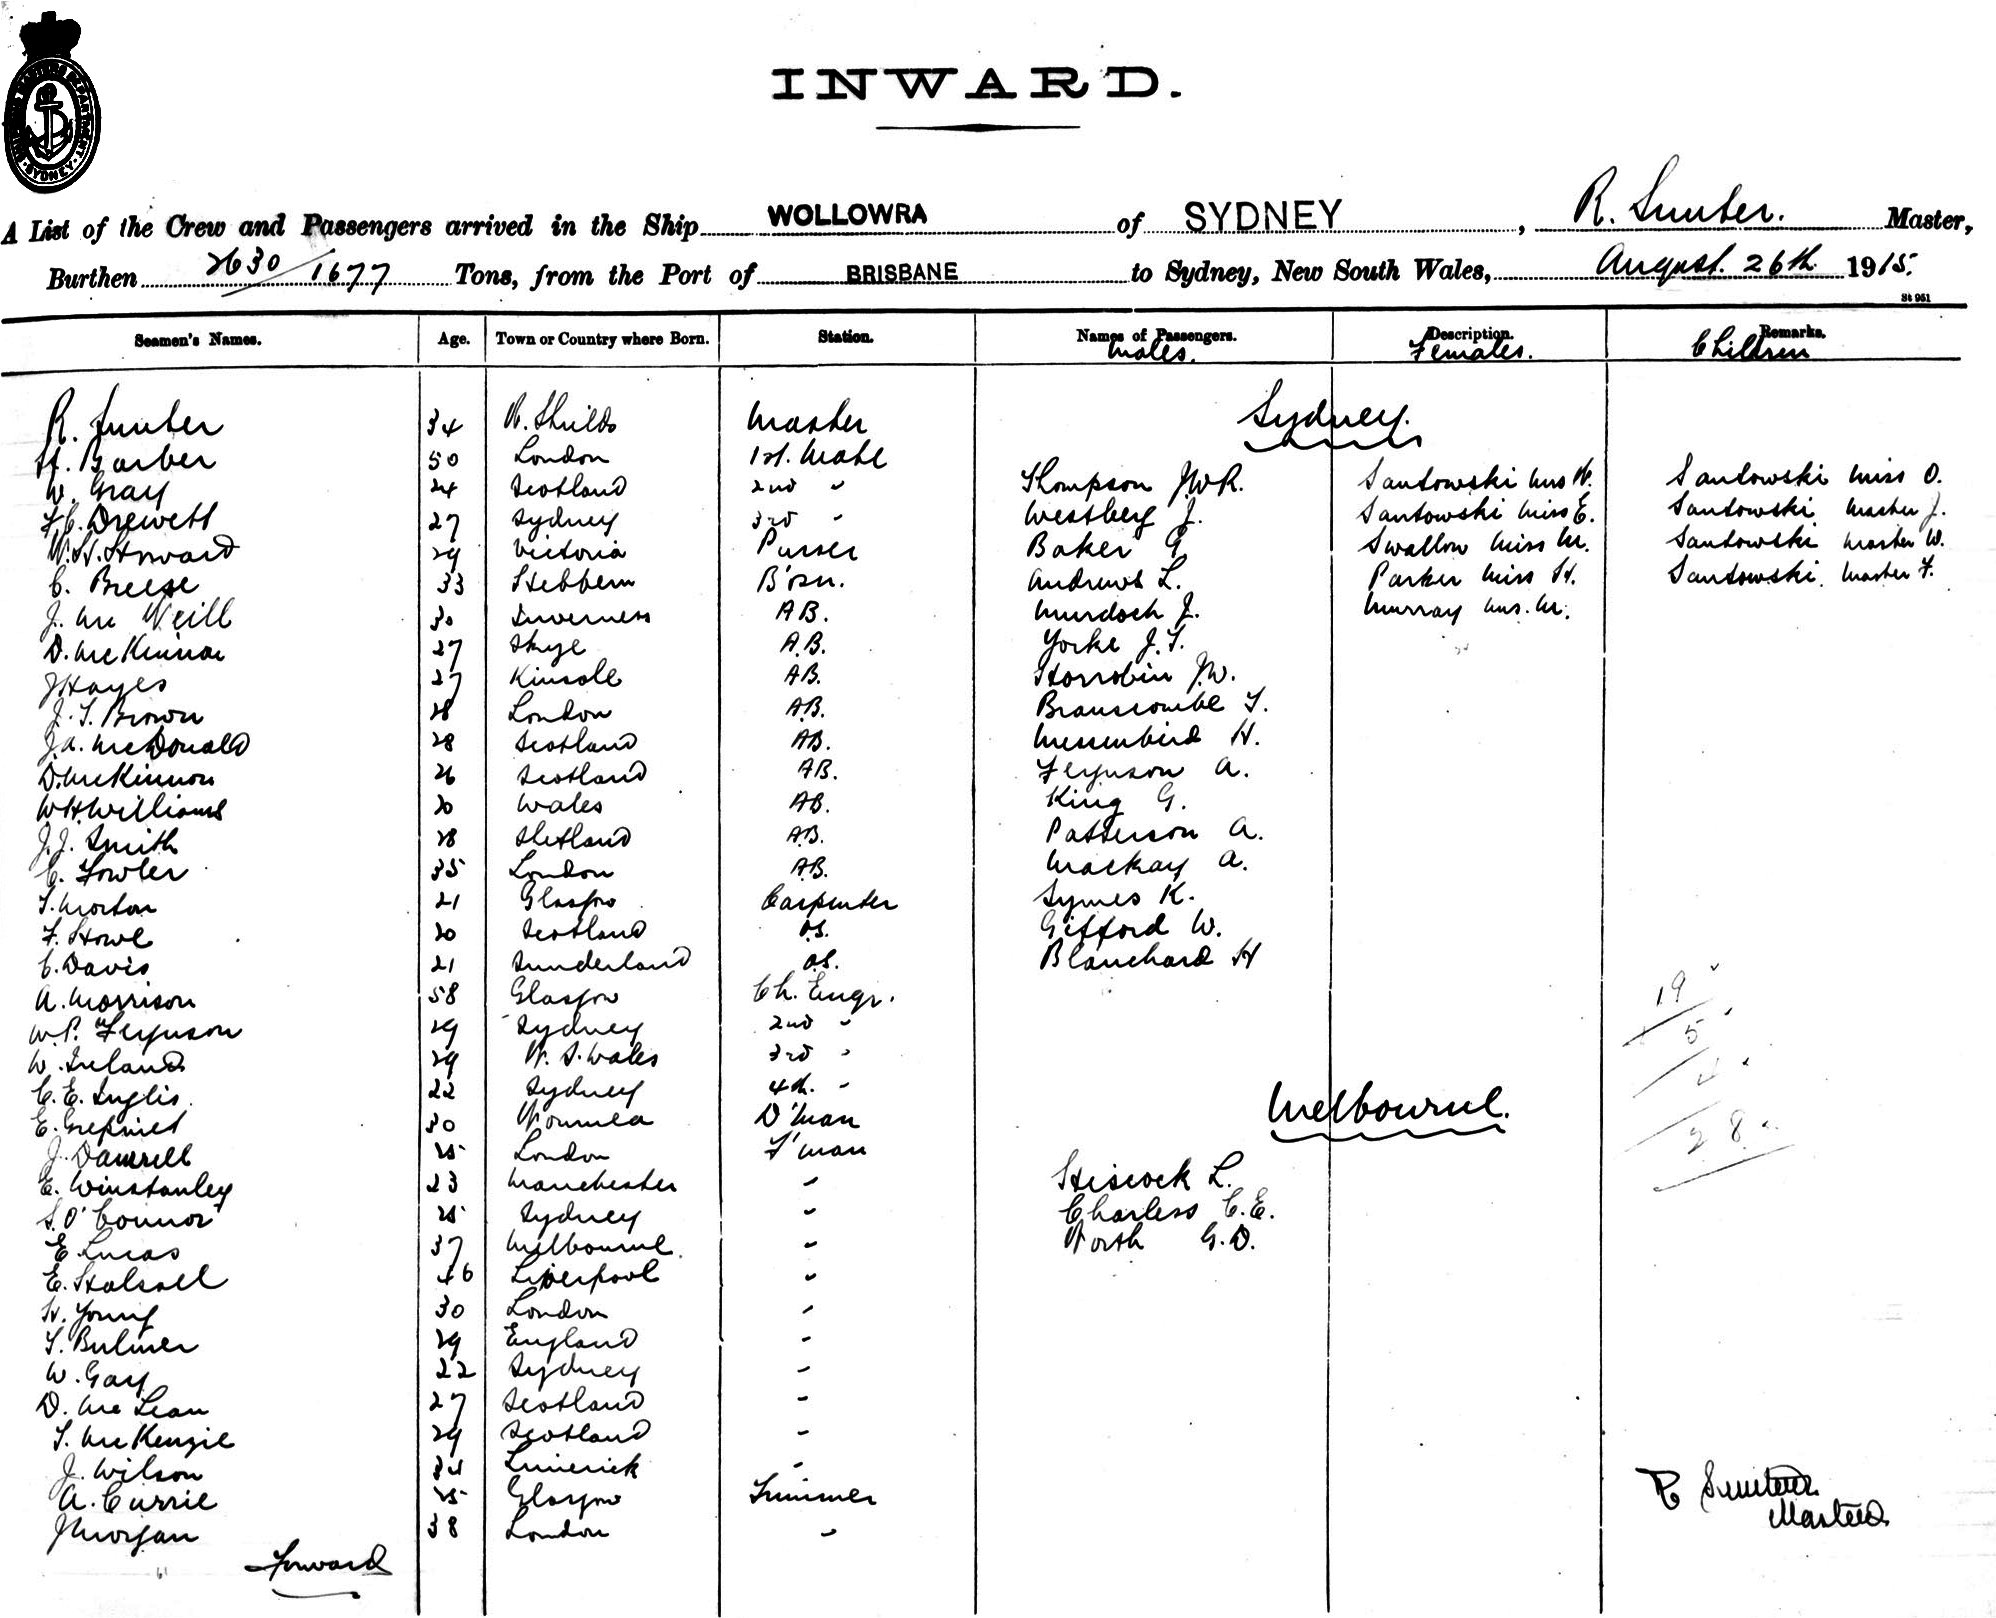 INWARD.
A List of the Crew and Passengers arrived in the Ship WOLLOWRA of SYDNEY, R. Sunter. Master,
Burthen 2630/1677 Tons, from the Port of BRISBANE to Sydney, New South Wales, August. 26th 1915.
St 951
Seamen's Names. Age. Town or Country where Born. Station. Names of Passengers. Description. Remarks.
Males. Females. Children
Sydney.
R. Sunter 34 N. Shields Master
H. Barber 50 London 1st. Mate
W. Gray 24 Scotland 2nd " Thompson J.W.R. Santowski Mrs N. Santowski Miss O.
F.C. Drewett 27 Sydney 3rd " Westberg J. Santowski Miss E. Santowski Master J.
W.H. Howard 29 Victoria Purser Baker G Swallow Miss M. Santowski Master W.
C. Breese 33 Hebburn B'osn. Andrews L. Parker Miss H. Santowski. Master F.
J. Mc Neill 30 Inverness A.B. Murdoch J. Murray Mrs. M.
D. McKinnon 27 Skye A.B. Yorke J.T.
J Hayes 27 Kinsale AB. Horrobin J.W.
J.T. Brown 28 London A.B. Branscombe T.
J.A. McDonald 28 Scotland AB. Messenbird H.
D. McKinnon 26 Scotland AB. Ferguson A.
W.H. Williams 20 Wales AB. King G.
J.J. Smith 28 Shetland A.B. Patterson A.
C. Fowler 35 London A.B. Mackay A.
T. Morton 21 Glasgow Carpenter Symes K.
F. Howe 20 Scotland O.S. Gifford W.
C. Davis 21 Sunderland O.S. Blanchard H
A. Morrison 58 Glasgow Ch. Engr.
W.P. Ferguson 29 Sydney 2nd "
W. Ireland 29 N.S. Wales 3rd "
C.E. Inglis. 22 Sydney 4th. "
19
5
4
28
Melbourne.
E. 30 Noumea D'man
J. Damrell 25 London F'man
E. Winstanley 23 Manchester " Hiscock L.
S. O'Connor 25 Sydney " Charless C.E.
E. Lucas 37 Melbourne. " North G.D.
E. Halsall 46 Liverpool "
H. Young 30 London "
T. Bulmer 29 England "
W. Gay 22 Sydney "
D. Mc Lean 27 Scotland "
T. McKenzie 29 Scotland "
J. Wilson 34 Limerick "
A. Currie 25 Glasgow Trimmer
J Morgan 38 London "
R Sunter
Master
Forward